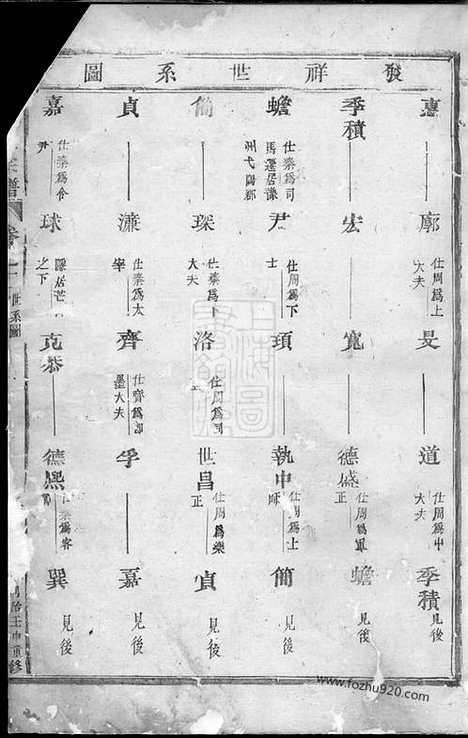 發祥世系圖
惠
廓 仕周爲上大夫
旻
道 仕周爲中大夫
季積 見後
季積
宏
寬
德盛 仕周爲軍正
蟾 見後
蟾 仕秦爲司馬遷居謙州弋陽郡
尹 仕周爲下士
頊
執中 仕周爲士師
簡 見後
簡
琛 仕秦爲下大夫
洛 仕周爲司
世昌 仕周爲樂正
貞 見後
貞
濂 仕秦爲太宰
齊 仕齊爲卽墨大夫
孚
嘉 見後
嘉 仕秦爲令尹
球 隱居芒之下
克恭
德熙 仕秦爲客
巽 見後
譜
卷
世系圖
治壬申重修
www.fozhu920.com